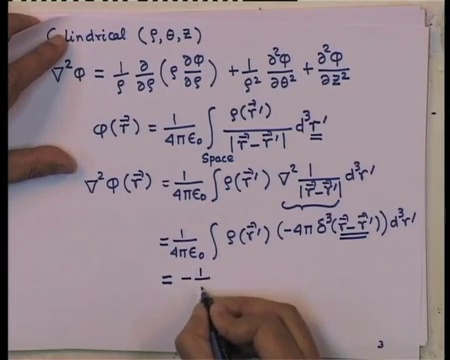 Cylindrical (ρ, θ, z)
∇²φ = 1/ρ ∂/∂ρ (ρ ∂φ/∂ρ) + 1/ρ² ∂²φ/∂θ² + ∂²φ/∂z²
φ(r⃗) = 1/4πε₀ ∫ ρ(r⃗′)/|r⃗−r⃗′| d³r′
Space
∇²φ(r⃗) = 1/4πε₀ ∫ρ(r⃗′) ∇² 1/|r⃗−r⃗′| d³r′
= 1/4πε₀ ∫ ρ(r⃗′) (−4π δ³(r⃗−r⃗′)) d³r′
= − 1/
3